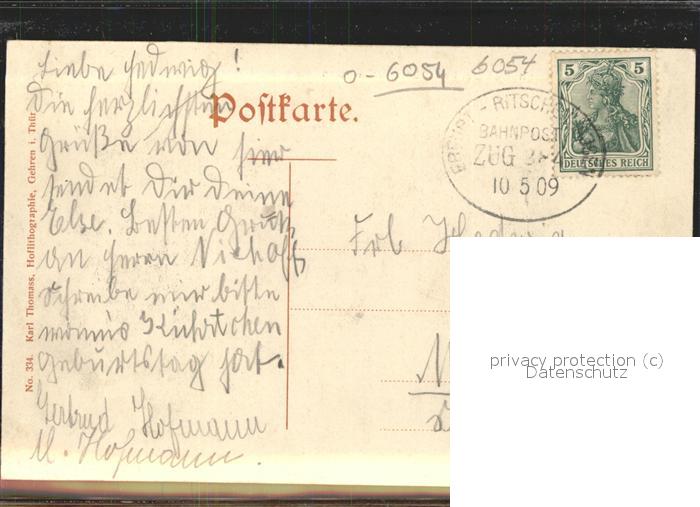 Liebe Hedwig!
Die herzlichsten
Grüße von hier
sendet Dir Deine
Else. Besten Gruß
an Herrn
Schreibe mir bitte
wann's
Geburtstag hat.
Gertrud Hofmann
M. Hofmann.
No. 334. Karl Thomass, Hoflithographie, Gehren i. Thür.
Postkarte.
0-6054 6054
5 5
DEUTSCHES REICH
BAHNPOST
ZUG
10 5 09
Frl Hedwig
privacy protection (c)
Datenschutz